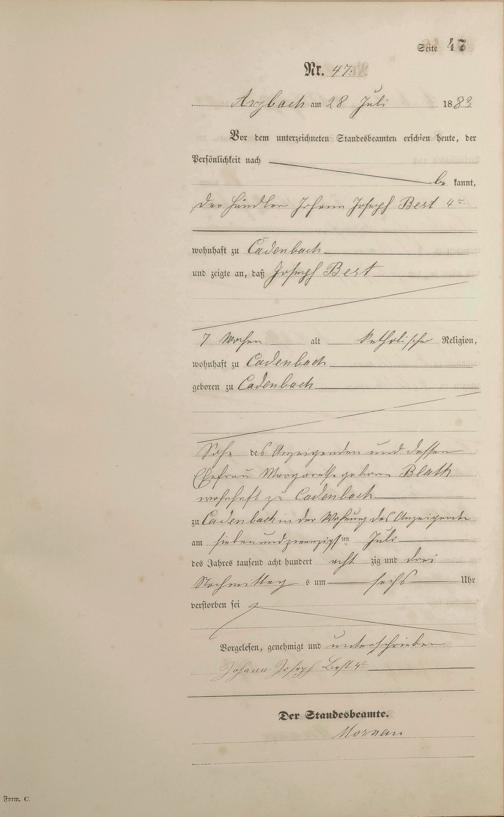 Seite 47
Nr. 47.
Arzbach am 28 Juli 1883
Vor dem unterzeichneten Standesbeamten erschien heute, der
Persönlichkeit nach
be kannt,
der Händler Johann Joseph Best 4r
wohnhaft zu Cadenbach
und zeigte an, daß Joseph Best
7 Wochen alt katholischer Religion,
wohnhaft zu Cadenbach
geboren zu Cadenbach
Sohn des Anzeigenden und dessen
Ehefrau Margarethe geborne
wohnhaft zu Cadenbach
zu Cadenbach in der Wohnung des Anzeigenden
am sieben und zwanzigsten Juli
des Jahres tausend acht hundert acht zig und drei
Nachmittag s um sechs Uhr
verstorben sei
Vorgelesen, genehmigt und unterschrieben
Johann Joseph Best 4r
Der Standesbeamte.
Form. C.